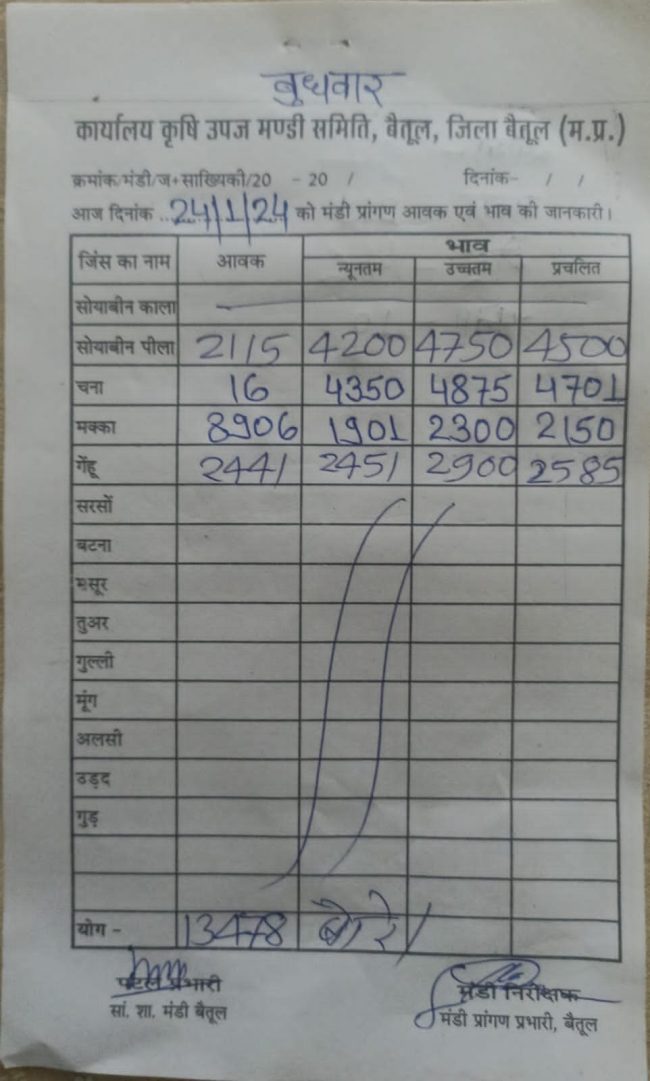 बुधवार
कार्यालय कृषि उपज मण्डी समिति, बैतूल, जिला बैतूल (म.प्र.)
क्रमांक/मंडी/ज+साख्यिकी/20 - 20 / दिनांक- / /
आज दिनांक ..24/1/24 को मंडी प्रांगण आवक एवं भाव की जानकारी।
जिंस का नाम आवक भाव
न्यूनतम उच्चतम प्रचलित
सोयाबीन काला —
सोयाबीन पीला 2115 4200 4750 4500
चना 16 4350 4875 4701
मक्का 8906 1901 2300 2150
गेंहू 2441 2451 2900 2585
सरसों
बटना
मसूर
तुअर
गुल्ली
मूंग
अलसी
उड़द
गुड़
योग - 13478 बोरे/
पटल प्रभारी मंडी निरीक्षक
सां. शा. मंडी बैतूल मंडी प्रांगण प्रभारी, बैतूल